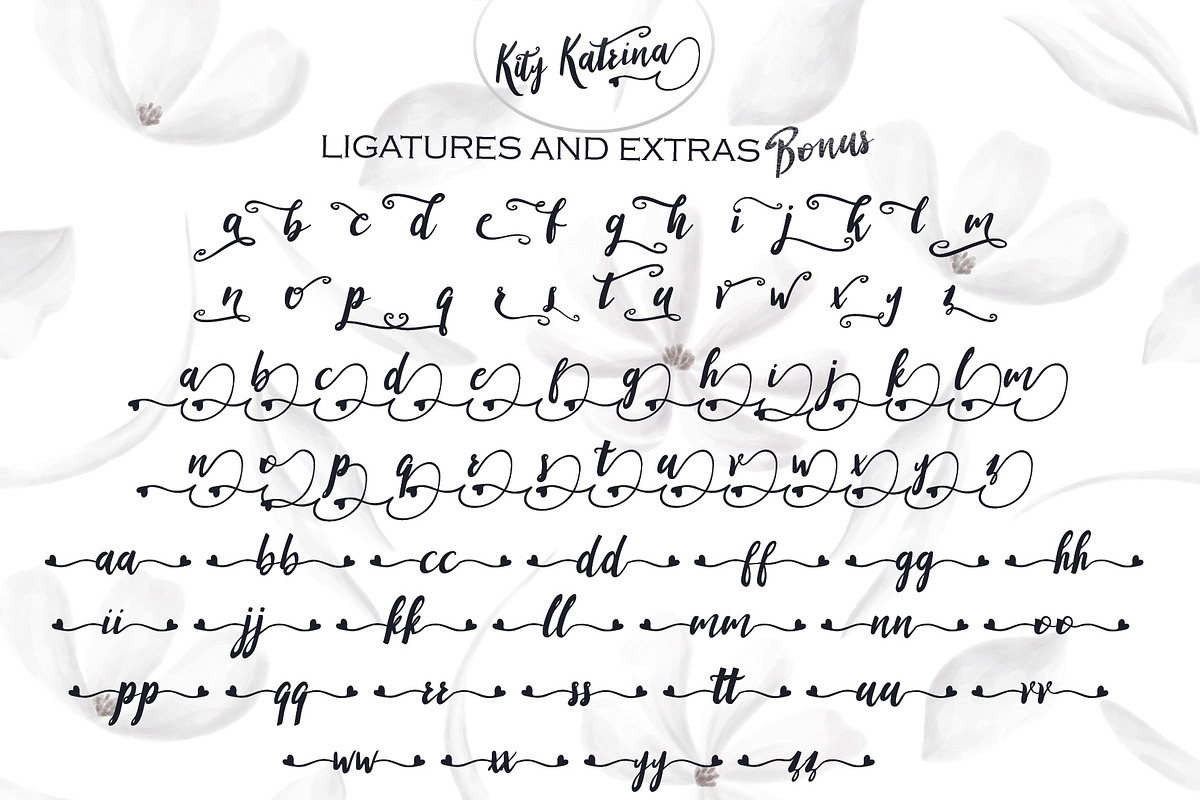 Kity Katrina
LIGATURES AND EXTRAS Bonus
a b c d e f g h i j k l m
n o p q r s t u v w x y z
a b c d e f g h i j k l m
n o p q r s t u v w x y z
aa bb cc dd ff gg hh
ii jj kk ll mm nn oo
pp qq rr ss tt uu vv
ww xx yy zz